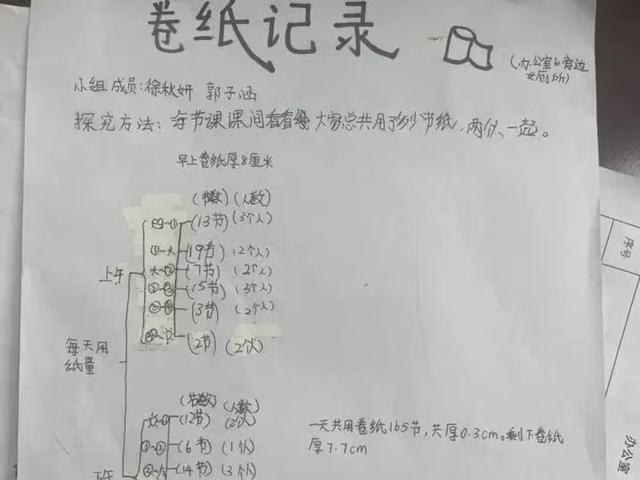 卷纸记录
(办公室的旁边
小组成员:徐秋妍 郭子涵
探究方法:每节课课间看看 大家总共用了多少节纸,两人一起。
早上卷纸厚8厘米
(节数) (人数)
上午
(13节) (3个人)
①~大 (19节) (2个人)
大~② (7节) (2个人)
(15节) (3个人)
(3节) (2个人)
(2节) (2个人)
每天用
纸量
(节数) (人数)
(12节) (2个人)
(6节) (1个人)
(14节) (3个人)
下午
一天共用卷纸165节,共厚0.3cm。剩下卷纸
厚7.7cm
序号
办公室